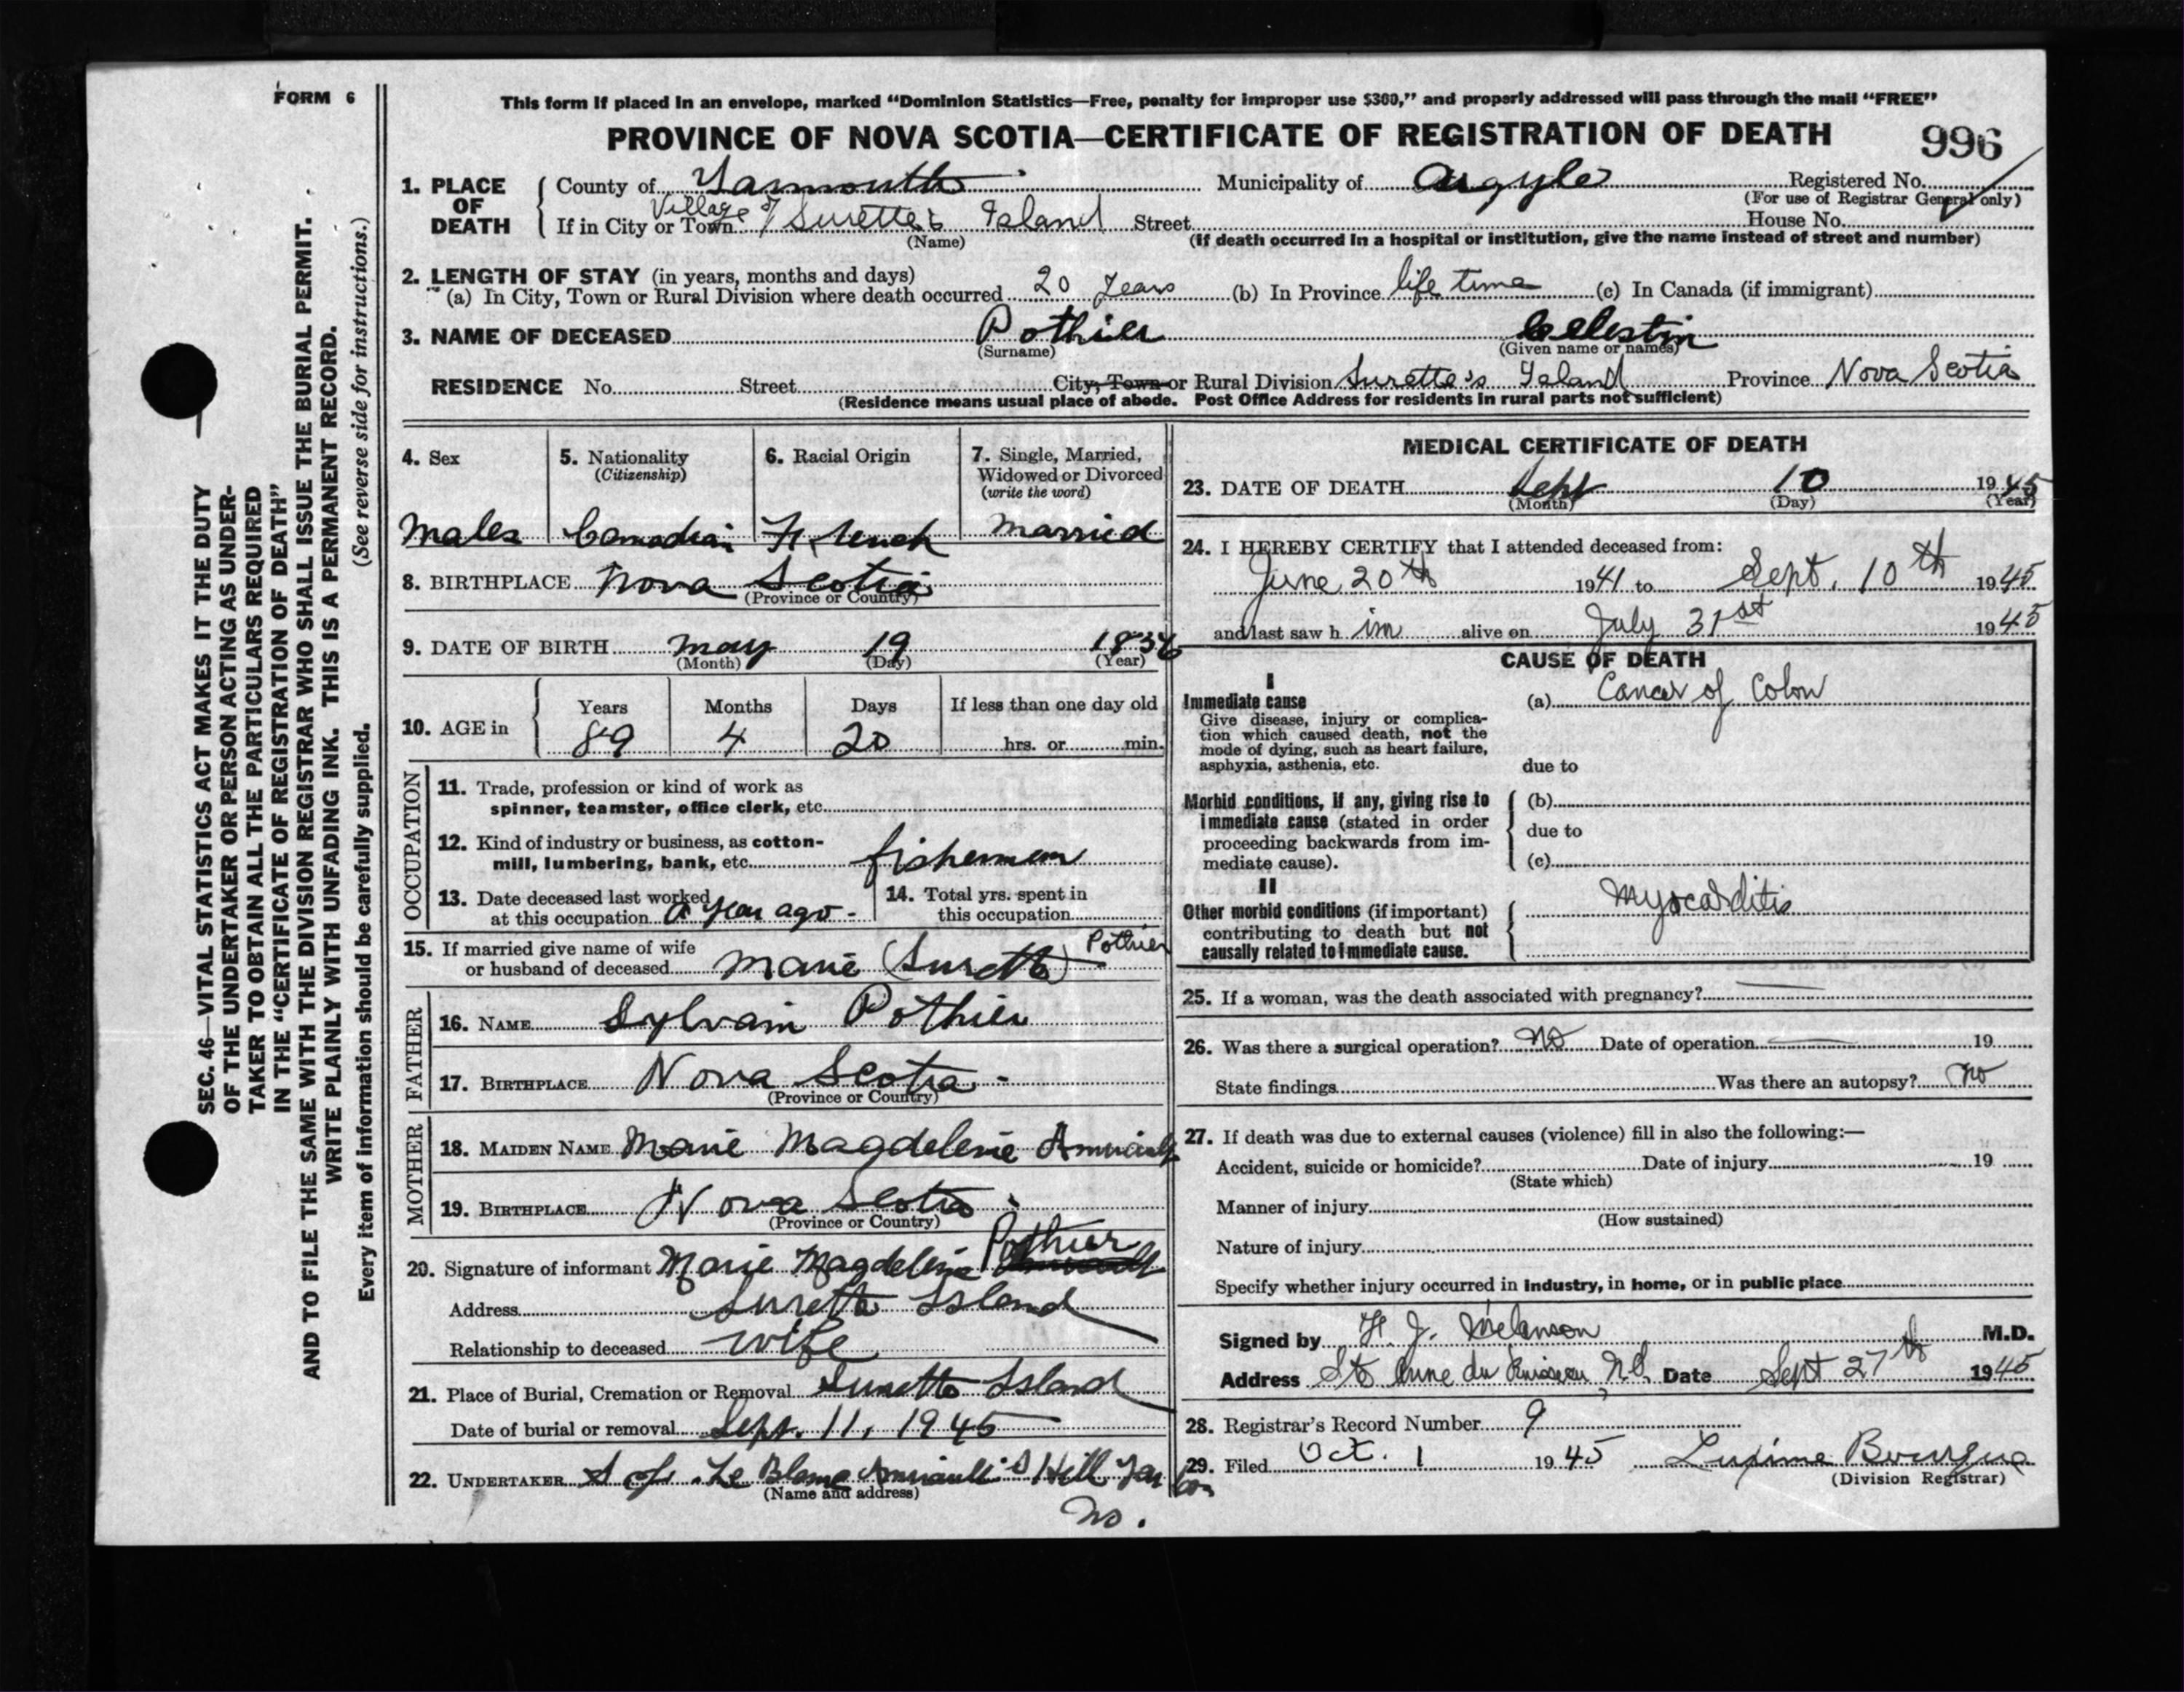 FORM 6
SEC. 46—VITAL STATISTICS ACT MAKES IT THE DUTY
OF THE UNDERTAKER OR PERSON ACTING AS UNDER-
TAKER TO OBTAIN ALL THE PARTICULARS REQUIRED
IN THE "CERTIFICATE OF REGISTRATION OF DEATH"
AND TO FILE THE SAME WITH THE DIVISION REGISTRAR WHO SHALL ISSUE THE BURIAL PERMIT.
WRITE PLAINLY WITH UNFADING INK. THIS IS A PERMANENT RECORD.
Every item of information should be carefully supplied. (See reverse side for instructions.)
This form if placed in an envelope, marked "Dominion Statistics—Free, penalty for improper use $300," and properly addressed will pass through the mail "FREE"
PROVINCE OF NOVA SCOTIA—CERTIFICATE OF REGISTRATION OF DEATH 996
1. PLACE OF DEATH County of Yarmouth Municipality of Argyle Registered No.
(For use of Registrar General only)
If in City or Town Village of Surette's Island Street House No.
(Name) (If death occurred in a hospital or institution, give the name instead of street and number)
2. LENGTH OF STAY (in years, months and days)
(a) In City, Town or Rural Division where death occurred 20 Years (b) In Province life time (c) In Canada (if immigrant)
3. NAME OF DECEASED Pothier Celestin
(Surname) (Given name or names)
RESIDENCE No. Street City, Town or Rural Division Surette's Island Province Nova Scotia
(Residence means usual place of abode. Post Office Address for residents in rural parts not sufficient)
4. Sex 5. Nationality 6. Racial Origin 7. Single, Married,
(Citizenship) Widowed or Divorced
(write the word)
Male Canadian French Married
8. BIRTHPLACE Nova Scotia
(Province or Country)
9. DATE OF BIRTH May 19 1836
(Month) (Day) (Year)
10. AGE in Years Months Days If less than one day old
89 4 20 hrs. or min.
OCCUPATION
11. Trade, profession or kind of work as
spinner, teamster, office clerk, etc.
12. Kind of industry or business, as cotton-
mill, lumbering, bank, etc. fisherman
13. Date deceased last worked
at this occupation a year ago -
14. Total yrs. spent in
this occupation
15. If married give name of wife
or husband of deceased Marie (Surette) Pothier
FATHER
16. NAME Sylvain Pothier
17. BIRTHPLACE Nova Scotia
(Province or Country)
MOTHER
18. MAIDEN NAME Marie Magdelene Amirault
19. BIRTHPLACE Nova Scotia
(Province or Country)
20. Signature of informant Marie Magdelene Pothier
Address Surette Island
Relationship to deceased wife
21. Place of Burial, Cremation or Removal Surette Island
Date of burial or removal Sept. 11, 1945
22. UNDERTAKER Le Blanc Amirault's Hill Yar Co.
(Name and address)
NS.
MEDICAL CERTIFICATE OF DEATH
23. DATE OF DEATH Sept 10 1945
(Month) (Day) (Year)
24. I HEREBY CERTIFY that I attended deceased from:
June 20th 1941 to Sept. 10th 1945
and last saw h im alive on July 31st 1945
CAUSE OF DEATH
I
Immediate cause (a) Cancer of Colon
Give disease, injury or complica-
tion which caused death, not the
mode of dying, such as heart failure,
asphyxia, asthenia, etc. due to
Morbid conditions, if any, giving rise to (b)
immediate cause (stated in order due to
proceeding backwards from im-
mediate cause). (c)
II
Other morbid conditions (if important) Myocarditis
contributing to death but not
causally related to immediate cause.
25. If a woman, was the death associated with pregnancy? —
26. Was there a surgical operation? No Date of operation — 19
State findings Was there an autopsy? No
27. If death was due to external causes (violence) fill in also the following:—
Accident, suicide or homicide? Date of injury 19
(State which)
Manner of injury
(How sustained)
Nature of injury
Specify whether injury occurred in industry, in home, or in public place
Signed by H. J. Melanson M.D.
Address Ste Anne du Ruisseau, N.S. Date Sept 27th 1945
28. Registrar's Record Number 9
29. Filed Oct. 1 1945 Luxime Bourque
(Division Registrar)